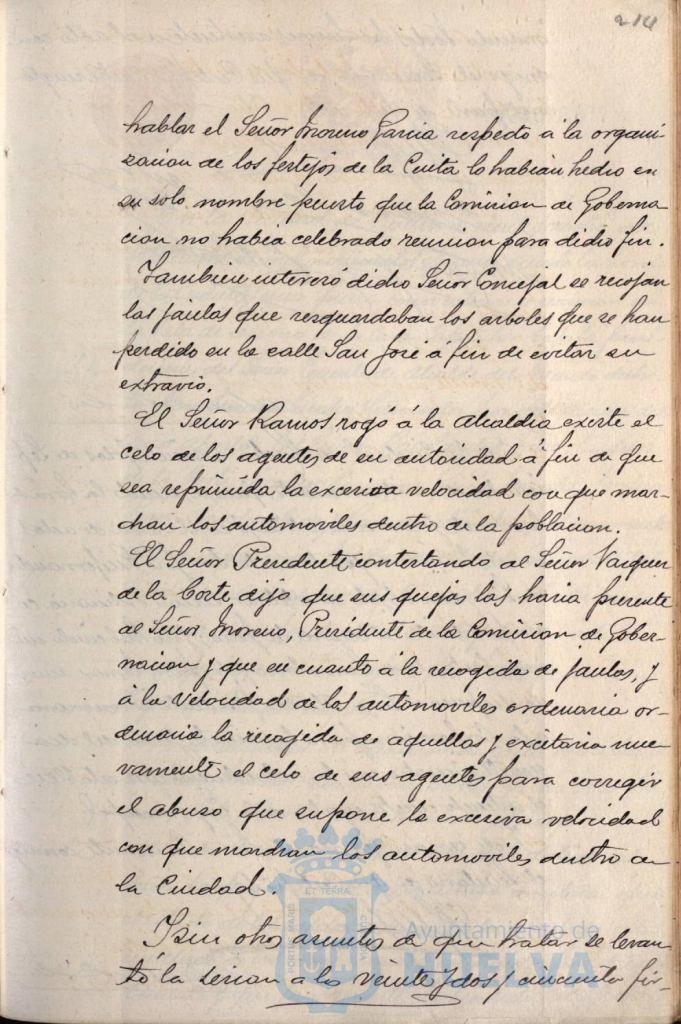 214
hablar el Señor Moreno Garcia respecto á la organi-
zacion de los festejos de la Cinta lo habian hecho en
su solo nombre puesto que la Comision de Goberna
cion no habia celebrado reunion para dicho fin.
Tambien interesó dicho Señor Concejal se recojan
las jaulas que resguardaban los arboles que se han
perdido en la calle San José á fin de evitar su
extravio.
El Señor Ramos rogó á la Alcaldia excite el
celo de los agentes de su autoridad á fin de que
sea reprimida la excesiva velocidad con que mar-
chan los automoviles dentro de la poblacion.
El Señor Presidente contestando al Señor Vazquez
de la Corte dijo que sus quejas las haria presente
al Señor Moreno, Presidente de la Comision de Gober-
nacion y que en cuanto á la recogida de jaulas, y
á la velocidad de los automoviles ordenaria or-
denaria la recogida de aquellas y excitaria nue
vamente el celo de sus agentes para corregir
el abuso que supone la excesiva velocidad
con que marchan los automoviles dentro de
la Ciudad.
Y sin otros asuntos de que tratar se levan
tó la sesion a las veinte y dos y cincuenta fir-
PORTUS MARIS ET TERRÆ CUSTODIA
Ayuntamiento de
HUELVA